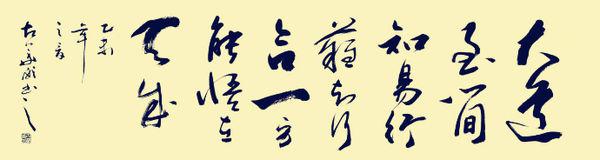 大道
至简
知易行
難知行
合一方
能悟在
天成
乙未
年
之夏